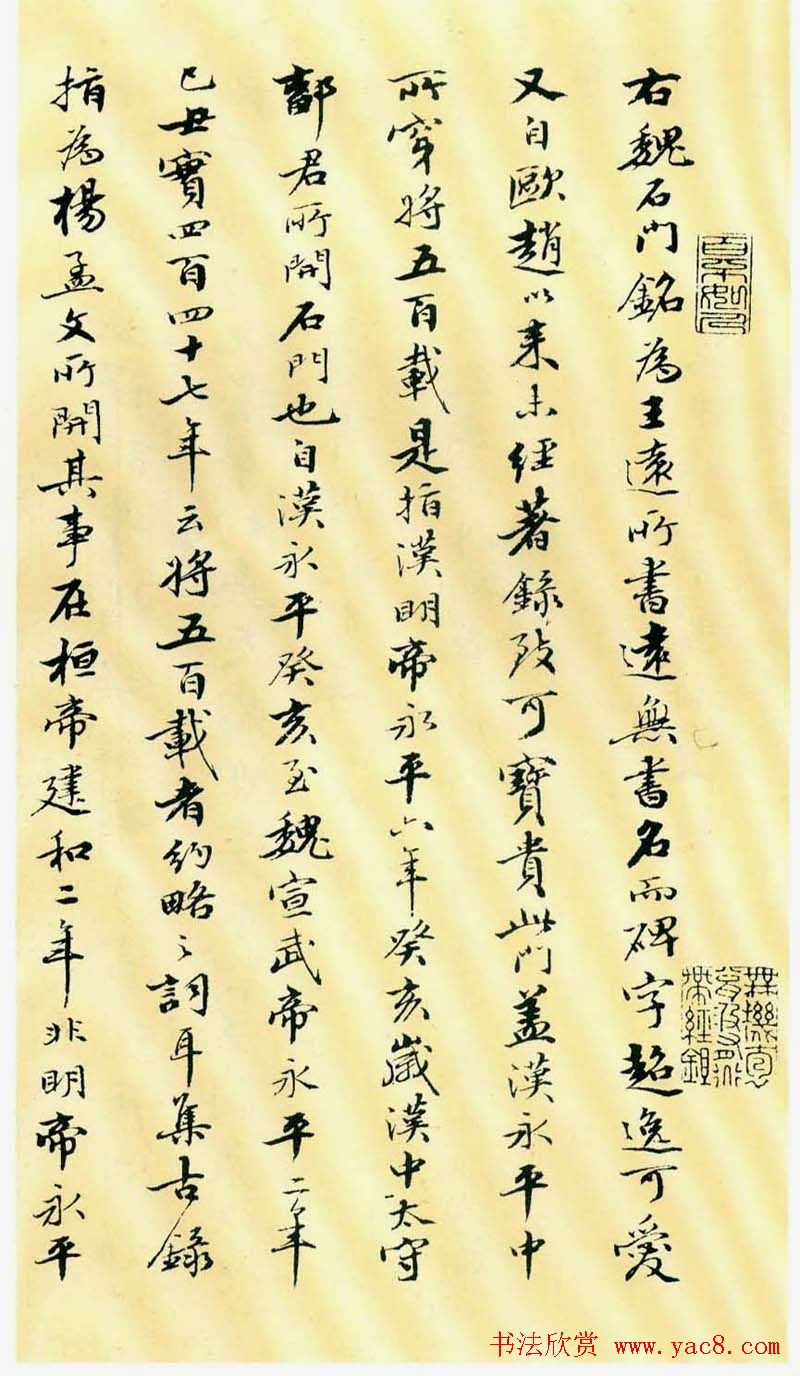 右魏石門銘為王遠所書遠無書名而碑字超逸可愛
又自歐趙以來未經著錄致可寶貴此門蓋漢永平中
所穿將五百載是指漢明帝永平六年癸亥歲漢中太守
鄐君所開石門也自漢永平癸亥至魏宣武帝永平二年
己丑實四百四十七年云將五百載者約略之詞耳集古錄
指為楊孟文所開其事在桓帝建和二年非明帝永平
书法欣赏 www.yac8.com